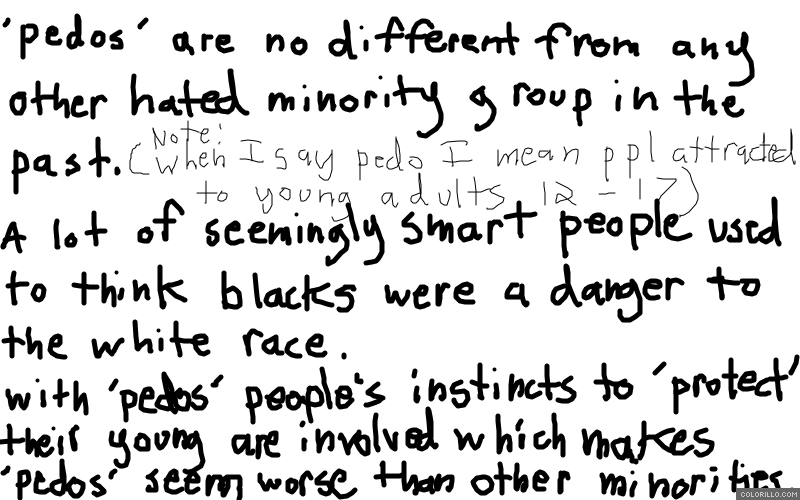 'pedos' are no different from any
other hated minority group in the
past. (Note: when I say pedo I mean ppl attracted
to young adults 12 - 17)
A lot of seemingly smart people used
to think blacks were a danger to
the white race.
with 'pedos' people's instincts to 'protect'
their young are involved which makes
'pedos' seem worse than other minorities
COLORILLO.COM